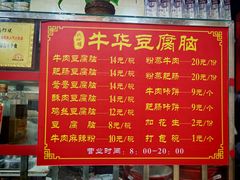 牛华豆腐脑
牛肉豆腐脑 14元/碗
肥肠豆腐脑 14元/碗
鸳鸯豆腐脑 14元/碗
酥肉豆腐脑 14元/碗
鸡丝豆腐脑 12元/碗
豆腐脑 8元/碗
牛肉麻辣粉 10元/碗
粉蒸牛肉 20元/份
粉蒸肥肠 20元/份
牛肉咔饼 9元/个
肥肠咔饼 9元/个
如花生 2元/份
打包碗 1元/个
营业时间：8：00-20：00